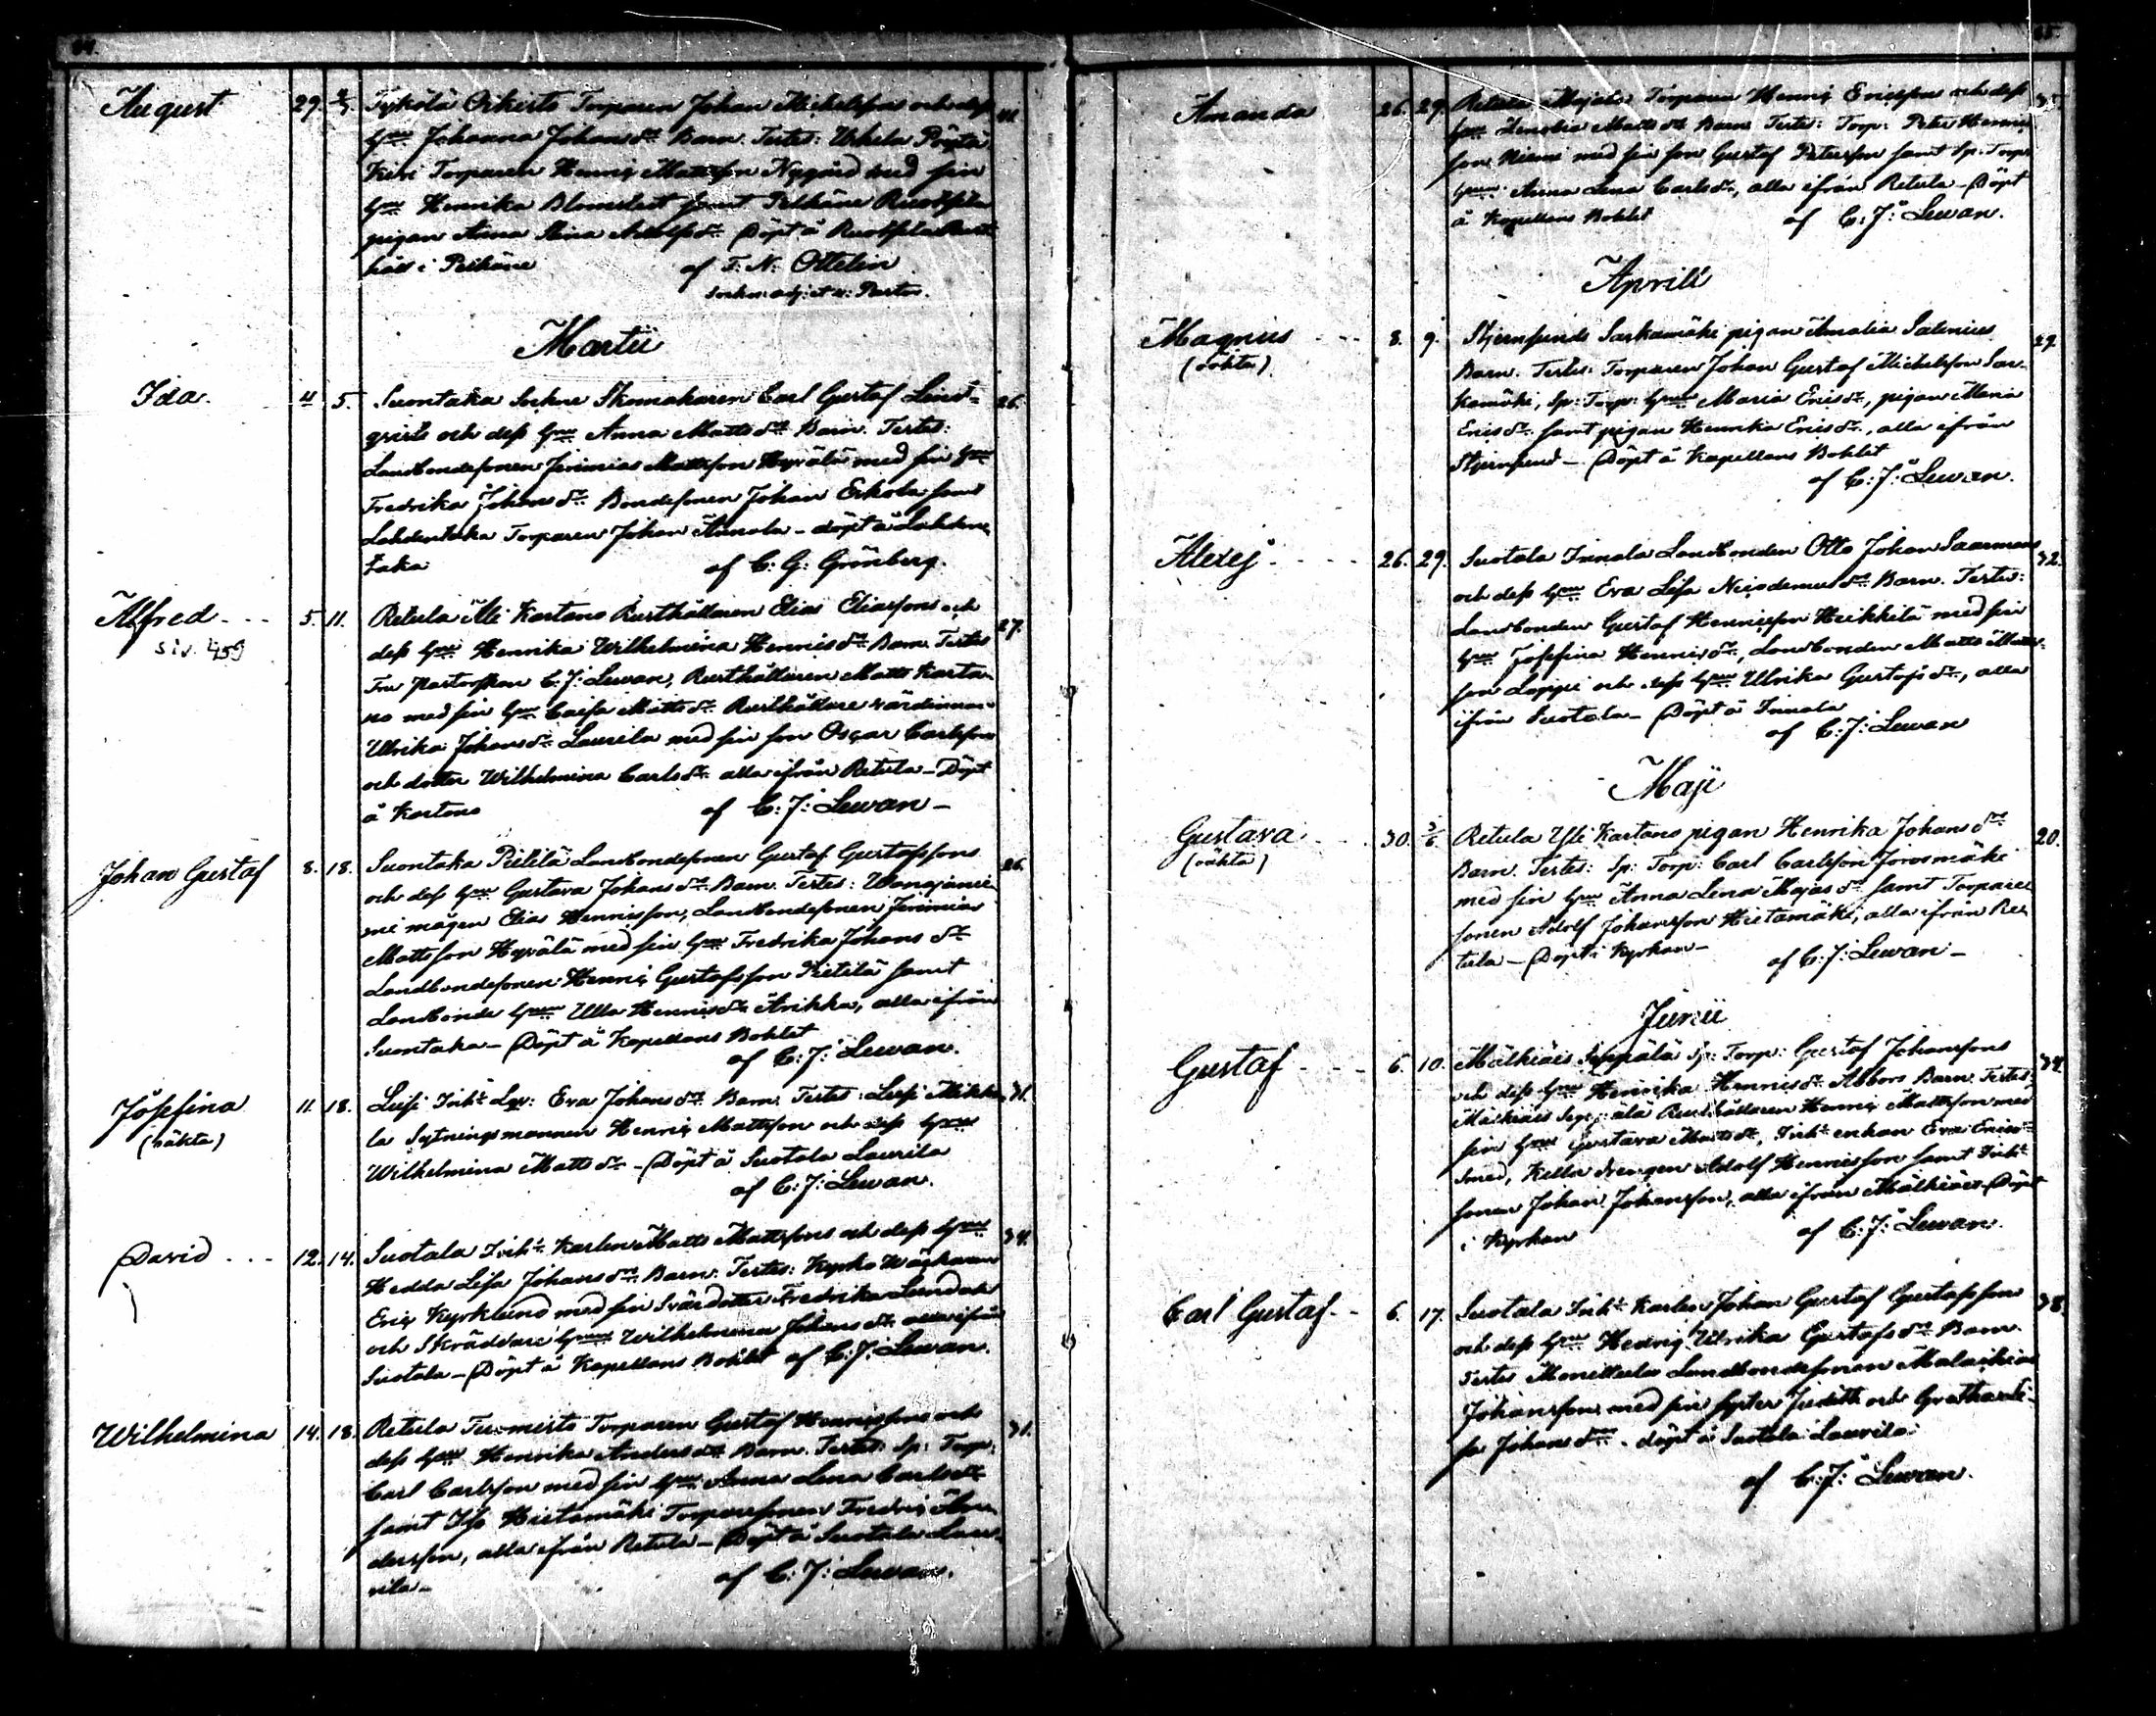 August 29. 2/3 Tykölä Orkerto Torparen Johan Michelsson och dess
hu Johanna Johans dr Barn. Testes:
Torparen Henric Mattsson Nygård med sin
hu Henrika Blomstedt samt Pelkäne Ruokola
pigan Anna Stina Adolfs dr Döpt å Rust-
håll i Pelkäne af F. N. Ottelin
Sockne adj: et v: Pastor.
Martii
Ida. 4 5. Suontaka Sockne Skomakaren Carl Gustaf Lind- 26.
qvists och dess hu Anna Matts dr Barn. Testes:
Landbondesonen Jeremias Mattsson Hyvälä med sin hu
Fredrika Johans dr Bondesonen Johan Erkola samt
Lahdentaka Torparen Johan Annola - döpt å Lahden-
taka af C. G. Grönberg.
Alfred 5. 11. Retula Äli Kartano Rusthållaren Elias Eliassons och 27.
siv. 459 dess hu Henrika Wilhelmina Henrics dr Barn. Testes
Fru Pastorskan C. J. Lewan, Rusthållaren Matts Karta-
no med sin hu Caisa Matts dr Rusthållare värdinnan
Ulrika Johans dr Laurila med sin son Oscar Carlsson
och dotter Wilhelmina Carls dr alla ifrån Retula - Döpt
å Kartano af C: J: Lewan -
Johan Gustaf 8. 18. Suontaka Pietilä Landbondesonen Gustaf Gustafssons 26.
och dess hu Gustava Johans dr Barn. Testes:
mågen Elias Henricsson, Landbondesonen Jeremias
Mattsson Hyvälä med sin hu Fredrika Johans dr
Landbondesonen Henric Gustafsson Pietilä samt
Landbonde hu Ulla Henrics dr Arikka, alla ifrån
Suontaka - Döpt å Kapellans Bohlet
af C: J: Lewan.
Josefina 11. 18. Lusi Inh: Eva Johans dr Barn. Testes: Lusi Mikko- 31.
(oäkta) la Sytningsmannen Henric Mattsson och dess hu
Wilhelmina Matts dr - Döpt å Suotala Laurila
af C: J: Lewan.
David 12. 14. Suotala Inh: Karlen Matts Mattssons och dess hu 34.
Hedda Lisa Johans dr Barn. Testes: Kyrko Wäktaren
Eric Kyrklund med sin Svärdotter Fredrika
och Skräddare hu Wilhelmina Johans dr alla ifrån
Suotala - Döpt å Kapellans Bohlet af C: J: Lewan.
Wilhelmina 14. 18. Retula Tuomisto Torparen Gustaf Henricssons och 31.
dess hu Henrika Anders dr Barn. Testes: Sp: Torp:
Carl Carlsson med sin hu Anna Lena Carls dr
samt Iso Hietamäki Torparesonen Fredric An-
dersson, alla ifrån Retula - Döpt å Suotala Lau-
rila - af C: J: Lewan.
Amanda 26. 29. Retula Majala Torparen Henric Ericsson och dess 35.
hu Matts dr Barn. Testes: Torp: Peter Henrics-
son Niemi med sin son Gustaf Petersson samt Sp: Torp:
hu Anna Lena Carls dr, alla ifrån Retula - Döpt
å Kapellans Bohlet af C: J: Lewan.
Aprilii
Magnus 8. 9. Stjernsunds Sarkamäki pigan Amalia Salenius 29.
(oäkta) Barn. Testes: Torparen Johan Gustaf Michelsson Sar-
kamäki, Sp: Torp: hu Maria Erics dr, pigan Maria
Erics dr samt pigan Henrika Erics dr, alla ifrån
Stjernsund - Döpt å Kapellans Bohlet
af C: J: Lewan.
Alexej 26. 29. Suotala Innala Landbonden Otto Johan Saarmans 32.
och dess hu Eva Lisa Nicodemus dr Barn. Testes:
Landbonden Gustaf Henricsson Heikkilä med sin
hu Josefina Henrics dr, Landbonden Matts Matts-
son Loppi och dess hu Ulrika Gustafs dr, alla
ifrån Suotala - Döpt å Innala
af C: J: Lewan
Maji
Gustava 30. 3/6. Retula Yli Kartano pigan Henrika Johans dr 20.
(oäkta) Barn. Testes: Sp: Torp: Carl Carlsson Jorosmäki
med sin hu Anna Lena Majas dr samt Torpare
sonen Adolf Johansson Hietamäki, alla ifrån Re-
tula - Döpt i Kyrkan - af C: J: Lewan -
Junii
Gustaf 6. 10. Mälkiäis Seppälä Sp: Torp: Gustaf Johanssons 34.
och dess hu Henrika Henrics dr Abbors Barn. Testes:
Mälkiäis Seppälä Rusthållaren Henric Mattsson med
sin hu Gustava Matts dr, Inh: enkan Eva
Smed, Kella drengen Adolf Henricsson samt Inh:
sonen Johan Johansson, alla ifrån Mälkiäis - Döpt
i Kyrkan af C: J: Lewan.
Carl Gustaf 6. 17. Suotala Inh: Karlen Johan Gustaf Gustafsson 38.
och dess hu Hedvig Ulrika Gustafs dr Barn.
Testes Monittula Landbondesonen Malachias
Johansson med sin syster Judith och Gretha Li-
sa Johans dr - döpt å Suotala Laurila
af C: J: Lewan.